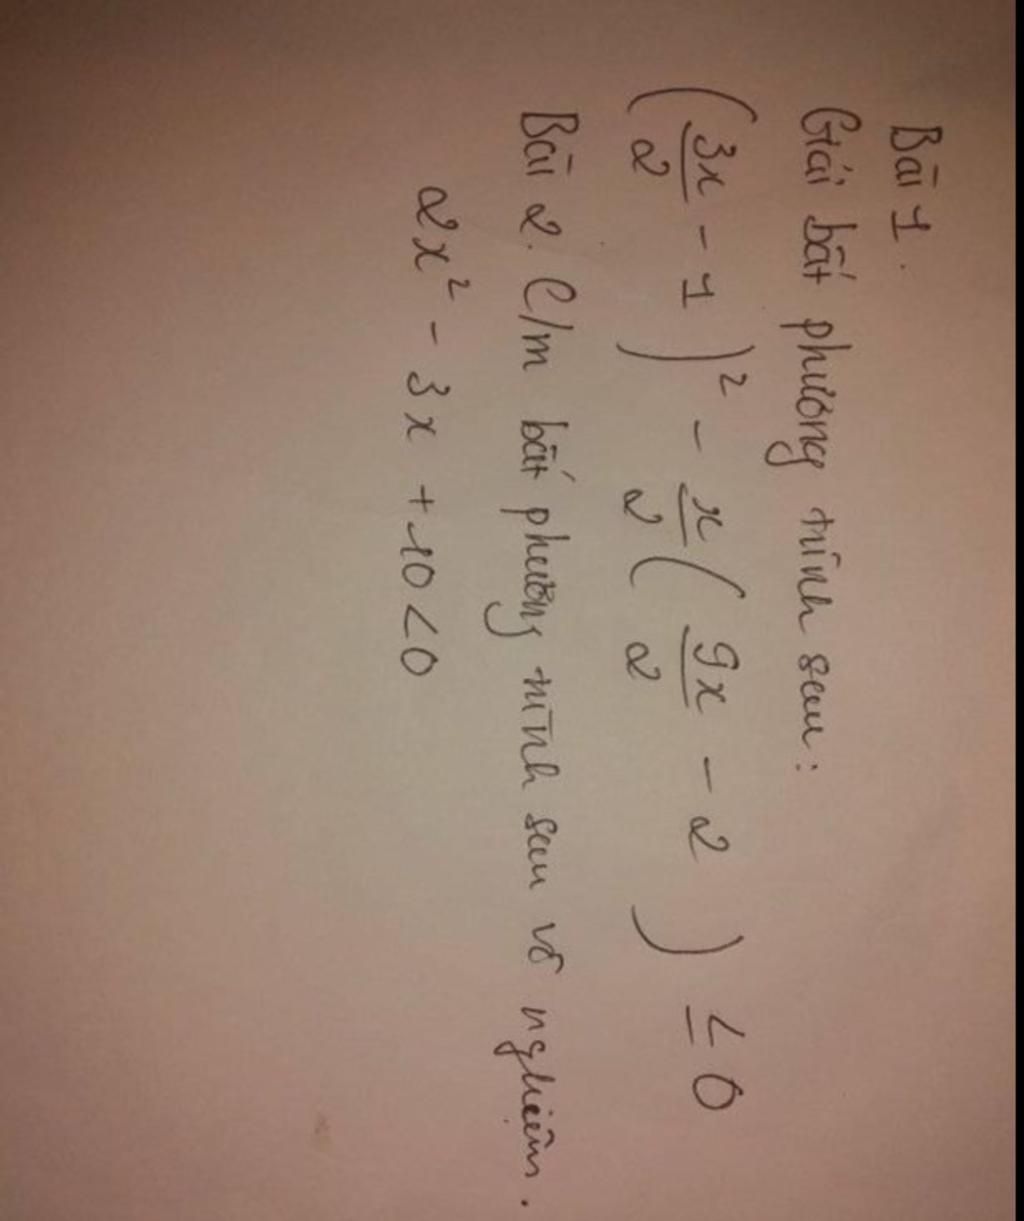 Bài 1.
Giải bất phương trình sau:
(3x/2 - 1)² - x/2 (9x/2 - 2) ≤ 0
Bài 2. C/m bất phương trình sau vô nghiệm.
2x² - 3x + 10 < 0